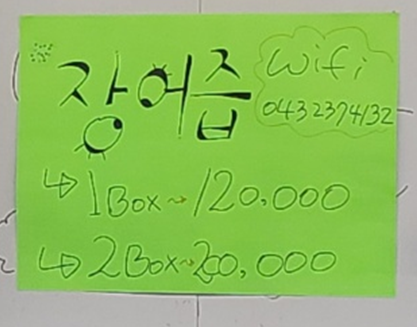 장어즙
Wifi
0432374132
↳ 1 Box ~ 120.000
↳ 2 Box ~ 200,000